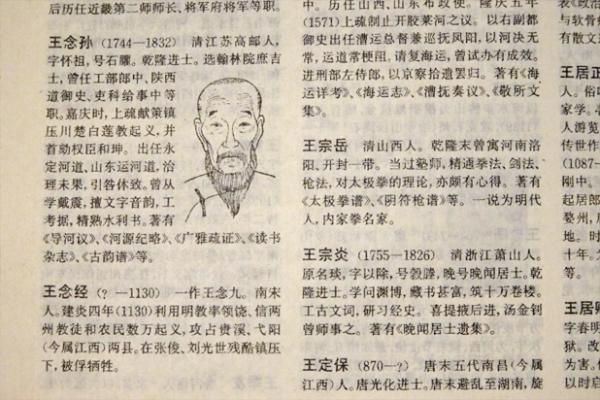 后历任近畿第二师师长、将军府将军等职。
王念孙（1744—1832） 清江苏高邮人，
字怀祖，号石臞。乾隆进士。选翰林院庶吉
士，曾任工部郎中、陕西
道御史、吏科给事中等
职。嘉庆时，上疏献策镇
压川楚白莲教起义，并
首劾权臣和珅。出任永
定河道、山东运河道，治
理未果，引咎休致。曾从
学戴震，擅文字音韵，工
考据，精熟水利书。著有
《导河议》、《河源纪略》、《广雅疏证》、《读书
杂志》、《古韵谱》等。
王念经（？—1130） 一作王念九。南宋
人。建炎四年(1130)利用明教率领饶、信两
州教徒和农民数万起义，攻占贵溪、弋阳
(今属江西)两县。在张俊、刘光世残酷镇压
下，被俘牺牲。
中。历任山西、山东布政使。隆庆五年
(1571)上疏制止开胶莱河之议。以右副都
御史出任漕运总督兼巡抚凤阳，以河决无
常，运道常梗阻，请复海运，曾试办有成效。
进刑部左侍郎，以京察拾遗罢归。著有《海
运详考》、《海运志》、《漕抚奏议》、《敬所文
集》。
王宗岳 清山西人。乾隆末曾寓河南洛
阳、开封一带。当过塾师，精通拳法、剑法、
枪法，对太极拳的理论，亦颇有心得。著有
《太极拳谱》、《阴符枪谱》等。一说为明代
人，内家拳名家。
王宗炎（1755—1826） 清浙江萧山人。
原名琰，字以除，号榖塍，晚号晚闻居士。乾
隆进士。学问渊博，藏书甚富，筑十万卷楼。
工古文词，研习经史。喜提掖后进，汤金钊
曾师事之。著有《晚闻居士遗集》。
王定保（870—？） 唐末五代南昌(今属
江西)人。唐光化进士。唐末避乱至湖南，旋
表《政治
与软骨
有散文
王居正
人。俗
家学。
人游览
传世作
(1087-
刚中。
起居郎
婺州，
地。时
十年。
等。
王居
字春明
狱。改
为害。
以时启